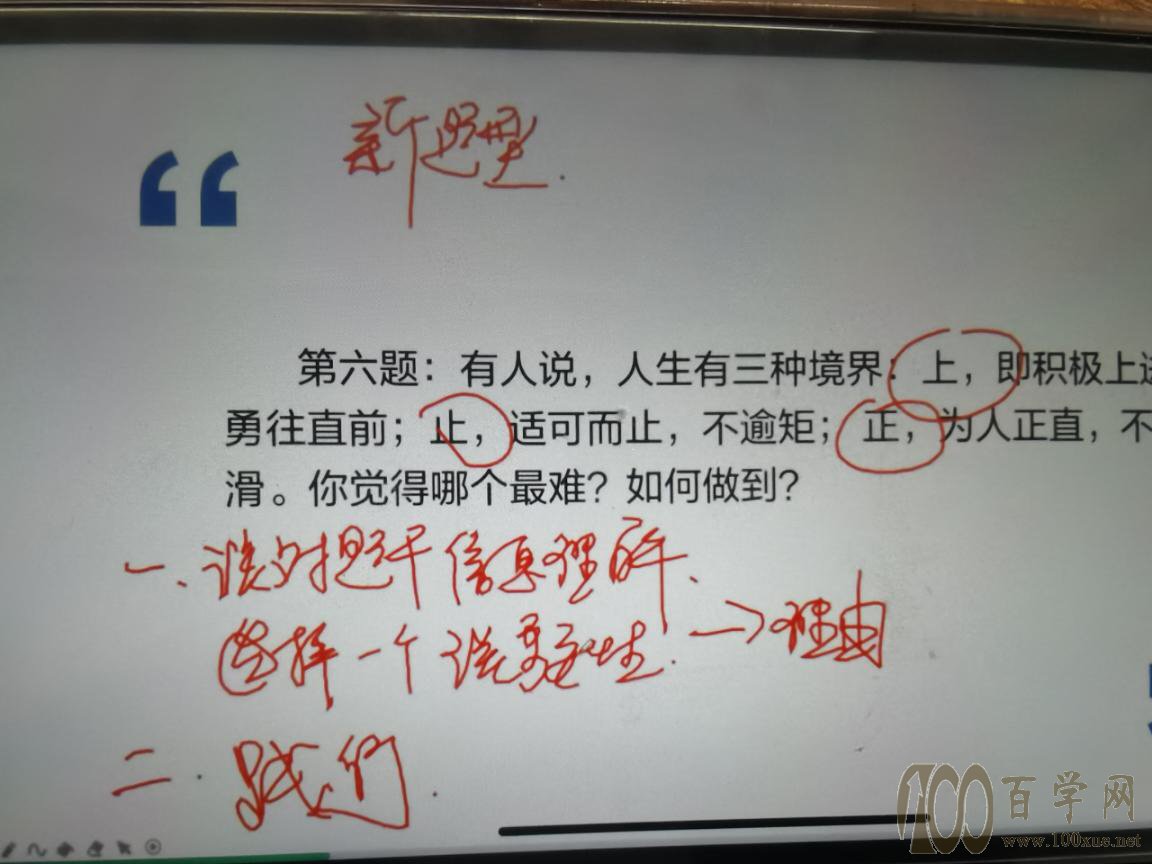 “
新题型.
第六题：有人说，人生有三种境界：上，即积极上进
勇往直前；止，适可而止，不逾矩；正，为人正直，不
滑。你觉得哪个最难？如何做到？
一、谈对题干信息理解.
选择一个说最难. → 理由
二.我们.
100百学网
www.100xue.net